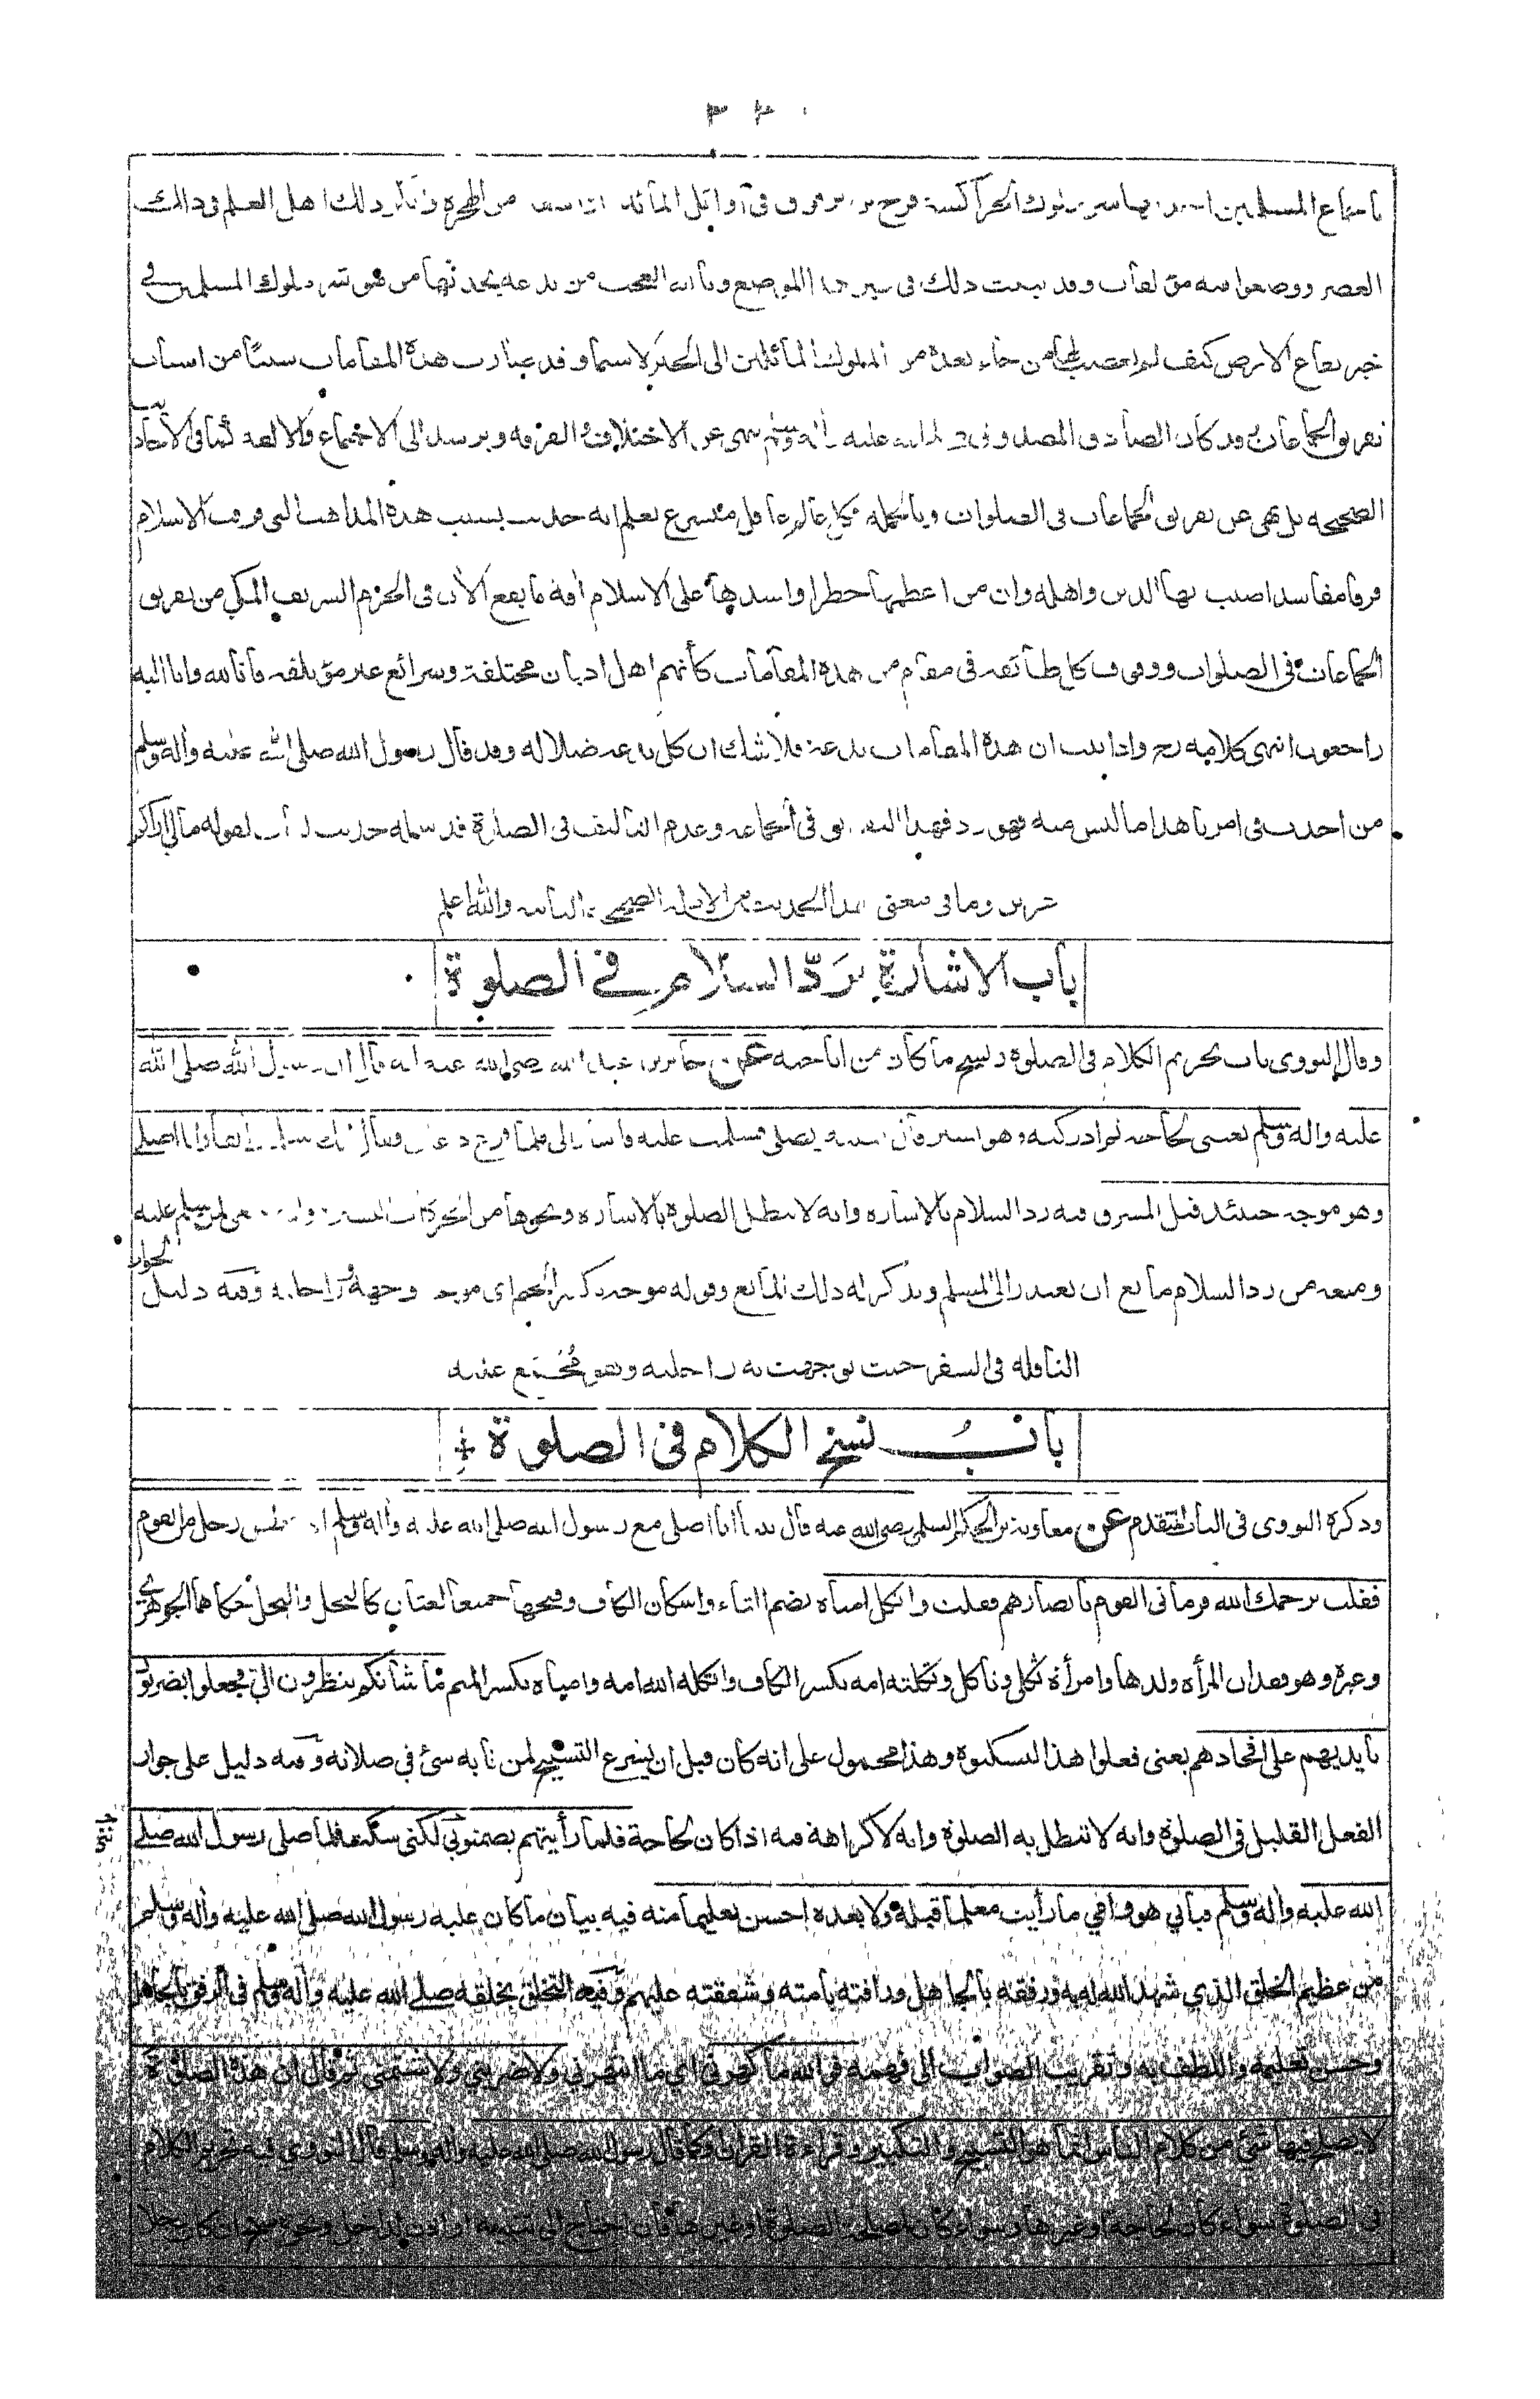 باجماع المسلمين احدثها شر ملوك الجراكسة فرج بن برقوق في اوائل المائة التاسعة من الهجرة وانكر ذلك اهل العلم في ذلك
العصر ووضعوا فيه مؤلفات وقد بينت ذلك في غير هذا الموضع ويالله العجب من بدعة يحدثها من هو شر ملوك المسلمين في
خير بقاع الارض كيف لم يغضب لها من جاء بعده من الملوك المائلين الى الخير لا سيما وقد صارت هذه المقامات سببًا من اسباب
تفريق الجماعات وقد كان الصادق المصدوق صلى الله عليه وآله وسلم ينهى عن الاختلاف والفرقة ويرشد الى الاجتماع والالفة كما في الاحاديث
الصحيحة بل نهى عن تفريق الجماعات في الصلوات وبالجملة فكل عاقل متشرع يعلم انه حدث بسبب هذه المذاهب التي فرقت الاسلام
فرقا مفاسد اصيب بها الدين واهله وان من اعظمها خطرا واشدها على الاسلام ما يقع الآن في الحرم الشريف المكي من تفريق
الجماعات في الصلوات ووقوف كل طائفة في مقام من هذه المقامات كأنهم اهل اديان مختلفة وشرائع غير مؤتلفة فانا لله وانا اليه
راجعون انتهى كلامه رح واذا ثبت ان هذه المقامات بدعة فلا شك ان كل بدعة ضلالة وقد قال رسول الله صلى الله عليه وآله وسلم
من احدث في امرنا هذا ما ليس منه فهو رد فهذا التفريق في الجماعة وعدم التأليف في الصلوة قد شمله حديث الباب لقوله مالي اراكم
عزين وما في معنى هذا الحديث من الادلة الصحيحة الثابتة والله اعلم
باب الاشارة برَدّ السلام في الصلوة
وقال النووي باب تحريم الكلام في الصلوة ونسخ ما كان من اباحته عن جابر بن عبد الله رضي الله عنه انه قال ان رسول الله صلى الله
عليه وآله وسلم بعثني لحاجة ثم ادركته وهو يسير قال قتيبة يصلي فسلمت عليه فاشار الي فلما فرغ دعاني فقال انك سلمت آنفا وانا اصلي
وهو موجه حينئذ قبل المشرق فيه رد السلام بالاشارة وانه لا تبطل الصلوة بالاشارة ونحوها من الحركات اليسيرة وانه ينبغي لمن سلم عليه
ومنعه من رد السلام مانع ان يعتذر الى المسلم ويذكر له ذلك المانع وقوله موجه بكسر الجيم اي موجه وجهه وراحلته وفيه دليل لجواز
النافلة في السفر حيث توجهت به راحلته وهو مُجْمَع عليه
بابُ نسخ الكلام في الصلوة
وذكره النووي في الباب المتقدم عن معاوية بن الحكم السلمي رضي الله عنه قال بينا انا اصلي مع رسول الله صلى الله عليه وآله وسلم اذ عطس رجل من القوم
فقلت يرحمك الله فرماني القوم بابصارهم فقلت واثكل امياه بضم الثاء واسكان الكاف وفتحها جميعا لغتان كالبخل والبخل حكاهما الجوهري
وغيره وهو فقدان المرأة ولدها وامرأة ثكلى وثاكل وثكلته امه بكسر الكاف واثكله الله امه وامياه بكسر الميم ما شأنكم تنظرون الي فجعلوا يضربون
بايديهم على افخاذهم يعني فعلوا هذا ليسكتوه وهذا محمول على انه كان قبل ان يشرع التسبيح لمن نابه شئ في صلاته وفيه دليل على جواز
الفعل القليل في الصلوة وانه لا تبطل به الصلوة وانه لا كراهة فيه اذا كان لحاجة فلما رأيتهم يصمتونني لكني سكت فلما صلى رسول الله صلى
الله عليه وآله وسلم فبأبي هو وامي ما رأيت معلما قبله ولا بعده احسن تعليما منه فيه بيان ما كان عليه رسول الله صلى الله عليه وآله وسلم
من عظيم الخلق الذي شهد الله له به ورفقه بالجاهل ورافته بامته وشفقته عليهم وفيه التخلق بخلقه صلى الله عليه وآله وسلم في الرفق بالجاهل
وحسن تعليمه واللطف به وتقريب الصواب الى فهمه فوالله ما كهرني اي ما انتهرني ولا ضربني ولا شتمني ثم قال ان هذه الصلوة
لا يصلح فيها شئ من كلام الناس انما هو التسبيح والتكبير وقراءة القرآن او كما قال رسول الله صلى الله عليه وآله وسلم قال النووي فيه تحريم الكلام
في الصلوة سواء كان لحاجة او غيرها وسواء كان لمصلحة الصلوة او غيرها فان احتاج الى تنبيه او اذن لداخل ونحوه سبح ان كان رجلا